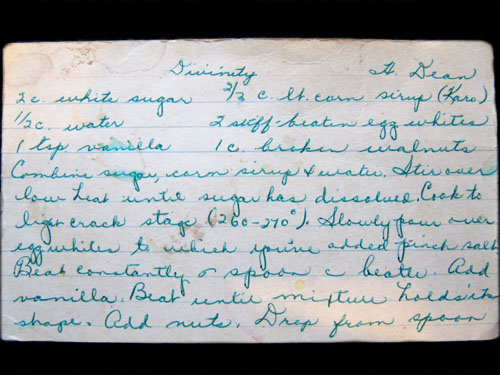 Divinity H. Dean
2 c. white sugar 2/3 c. lt. corn sirup (Karo)
1/2 c. water 2 stiff-beaten egg whites
1 tsp vanilla 1 c. broken walnuts
Combine sugar, corn sirup & water. Stir over
low heat until sugar has dissolved. Cook to
light crack stage (260-270°). Slowly pour over
egg whites to which you've added pinch salt
Beat constantly spoon c beater. Add
vanilla. Beat until mixture holds its
shape. Add nuts. Drop from spoon